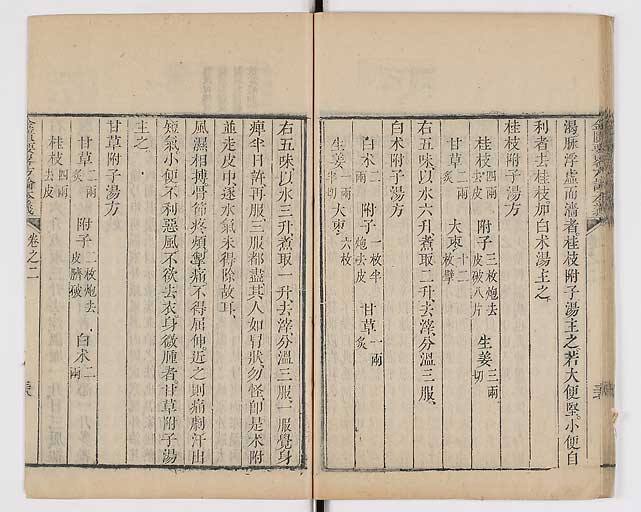 渴脉浮虛而濇者桂枝附子湯主之若大便堅小便自
利者去桂枝加白术湯主之
桂枝附子湯方
桂枝四兩去皮 附子三枚炮去皮破八片 生姜三兩切
甘草二兩炙 大棗十二枚擘
右五味以水六升煮取二升去滓分溫三服
白术附子湯方
白术二兩 附子一枚半炮去皮 甘草一兩炙
生姜一兩半切 大棗六枚
右五味以水三升煮取一升去滓分溫三服一服覺身
痺半日許再服三服都盡其人如冒狀勿怪卽是术附
並走皮中逐水氣未得除故耳
風濕相搏骨節疼煩掣痛不得屈伸近之則痛劇汗出
短氣小便不利惡風不欲去衣身微腫者甘草附子湯
主之
甘草附子湯方
甘草二兩炙 附子二枚炮去皮臍破 白术二兩
桂枝四兩去皮
卷之二